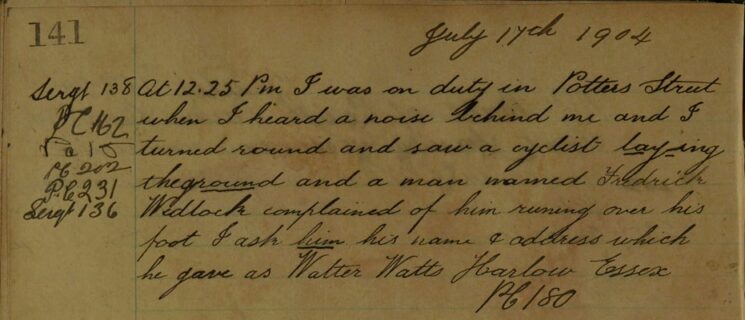 141
July 17th 1904
Sergt 138
PC 162
PC 202
PC 231
Sergt 136
At 12.25 Pm I was on duty in Potters Street
when I heard a noise behind me and I
turned round and saw a cyclist laying
theground and a man named Fredrick
Wedlock complained of him runing over his
foot I ask him his name & address which
he gave as Walter Watts Harlow Essex
PC 180